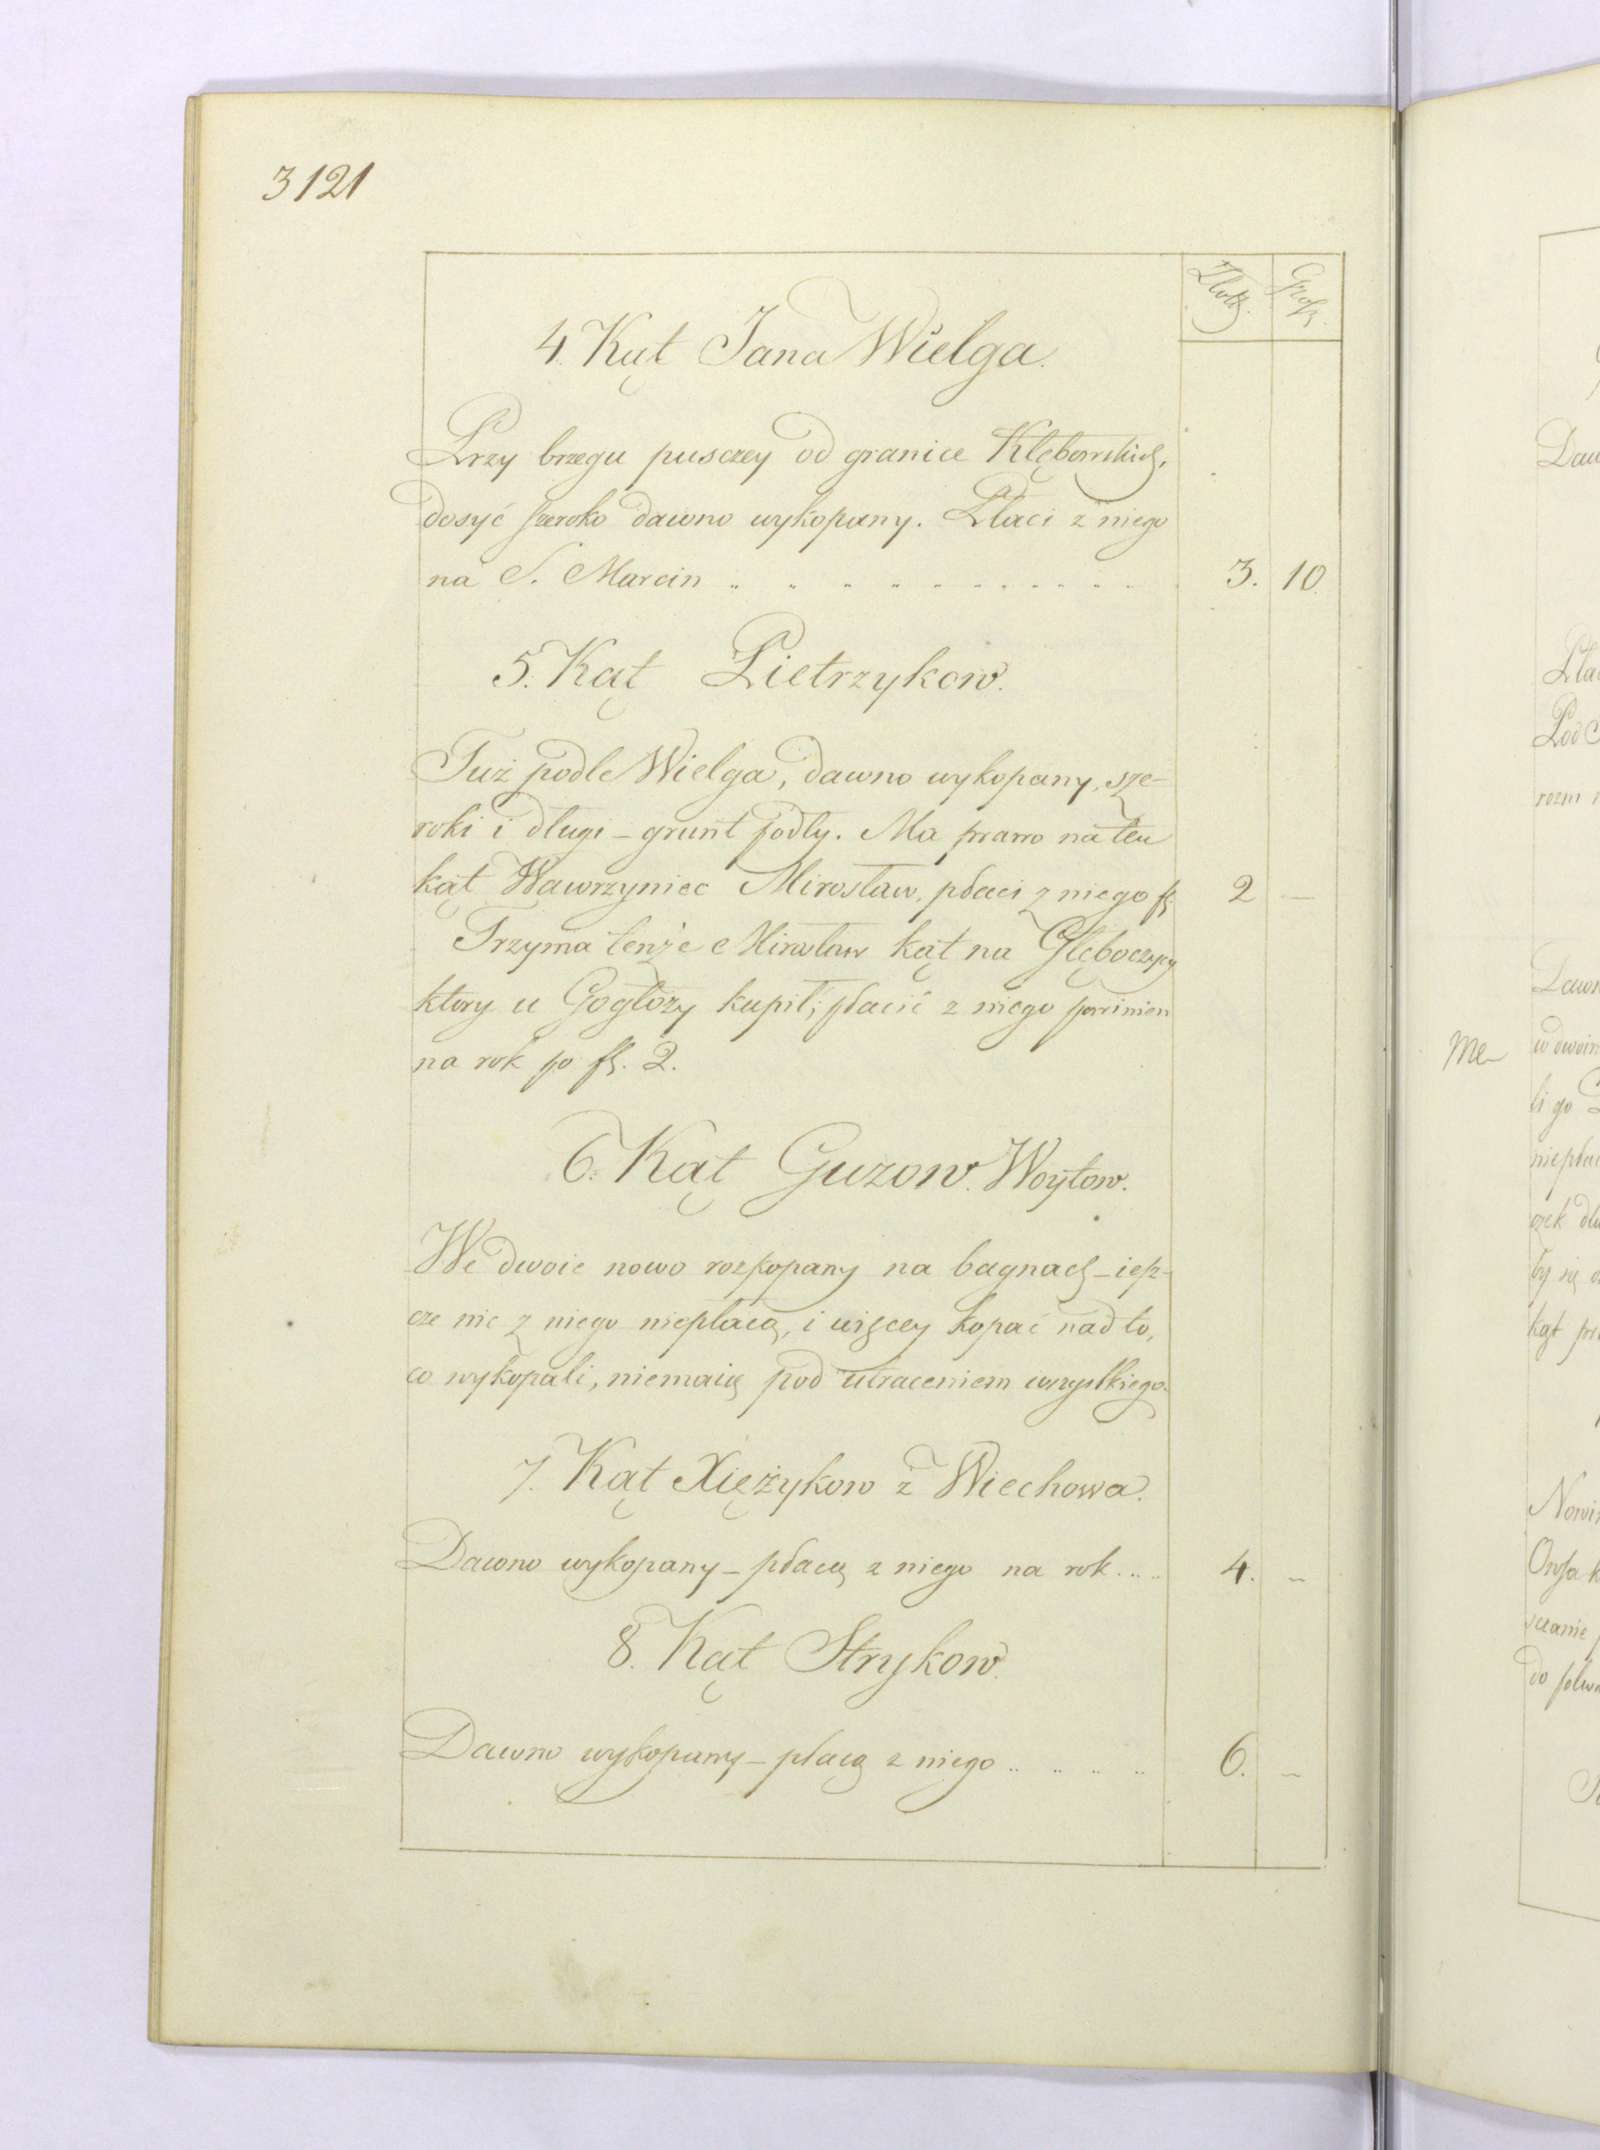 3121
Złote. Grosz.
4. Kąt Jana Wielga.
Przy brzegu pusczey od granice Klębowskich,
dosyć szeroko dawno wykopany. Płaci z niego
na S. Marcin .. .. .. .. .. .. .. 3. 10.
5. Kąt Pietrzykow.
Tuż podle Wielga, dawno wykopany, sze-
roki i długi – grunt podły. Ma prawo na ten
kąt Wawrzyniec Mirosław, płaci z niego fl. 2 —
Trzyma tenże Mirosław kąt na Głęboczycy
ktory u Gogłozy kupił; płacić z niego powinien
na rok po fl. 2.
6. Kąt Guzow. Woytow.
We dwoie nowo rozkopany na bagnach – iesz-
cze nic z niego niepłacą, i więcey kopać nad to,
co wykopali, niemaią pod utraceniem wszystkiego.
7. Kąt Xiężykow z Wiechowa.
Dawno wykopany – płacą z niego na rok .... 4. –
8. Kąt Strykow.
Dawno wykopany – płacą z niego .. .. .. .. 6. –